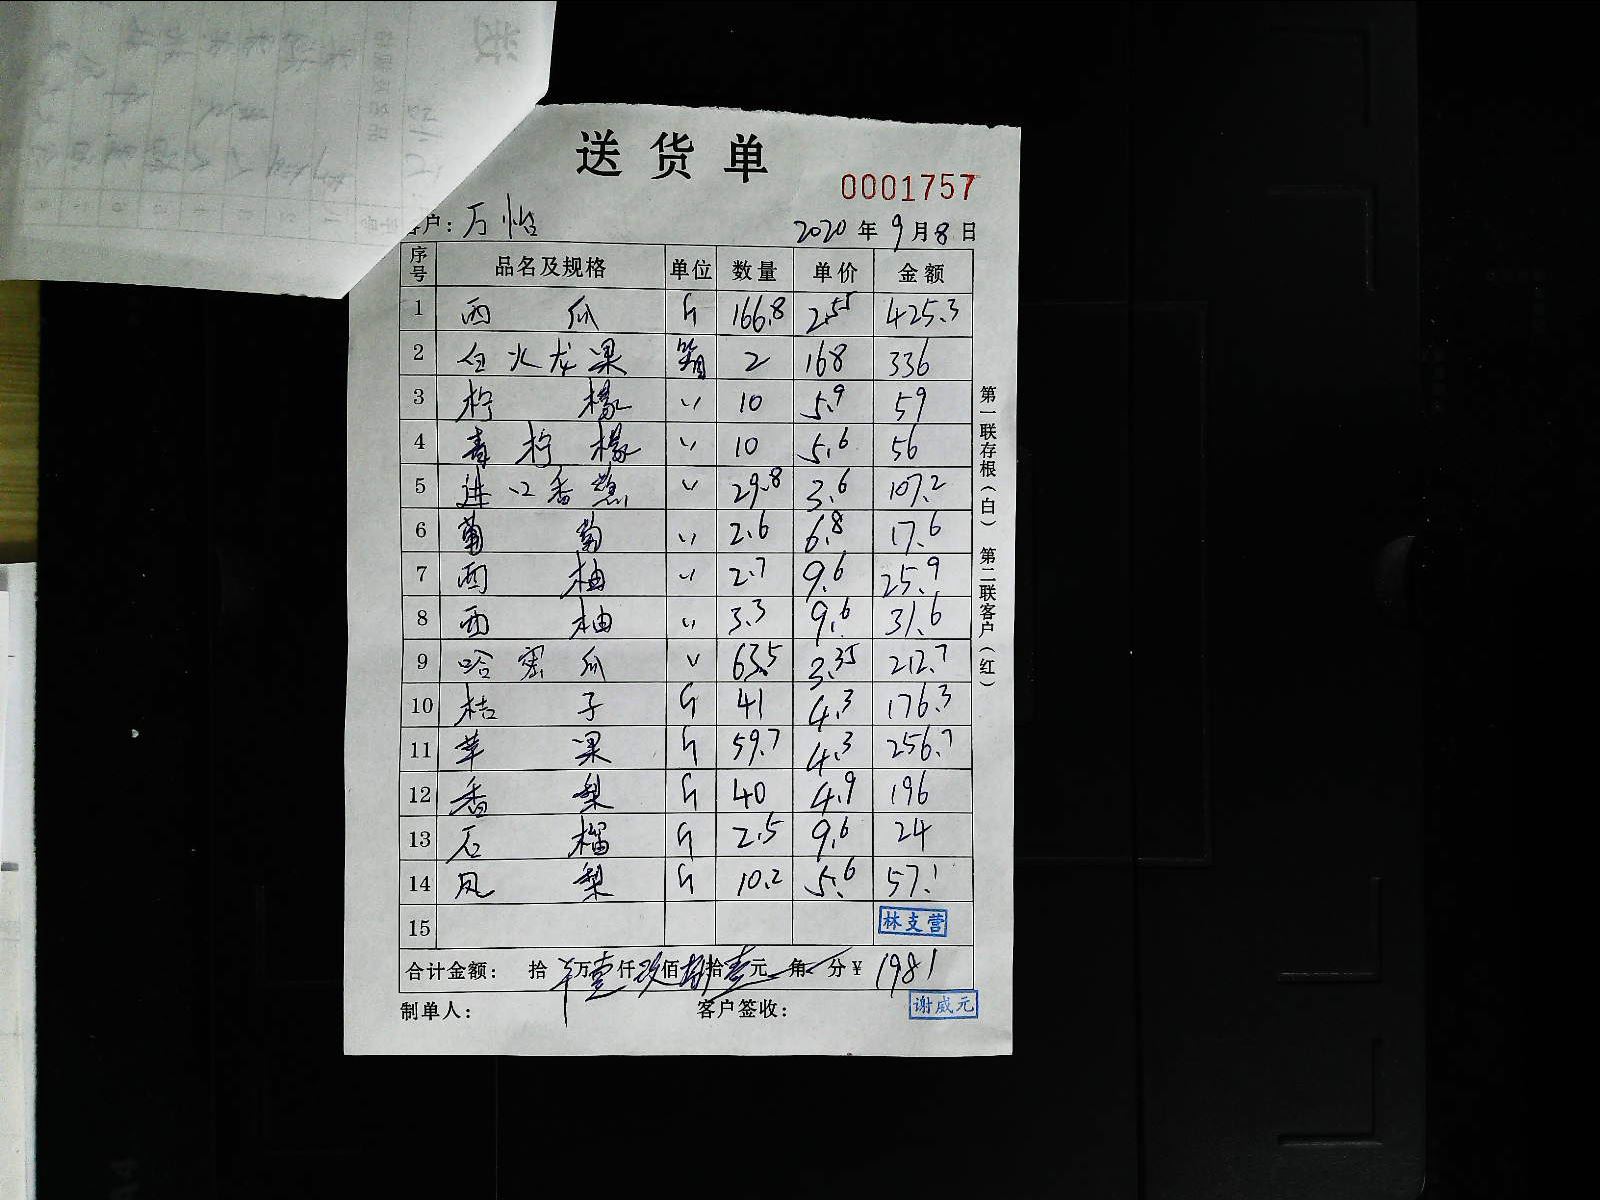 送货单
0001757
客户: 万怡 2020年9月8日
序号 品名及规格 单位 数量 单价 金额
1 西瓜 斤 166.8 2.55 425.3
2 白火龙果 箱 2 168 336
3 柠檬 〃 10 5.9 59
4 青柠檬 〃 10 5.6 56
5 进口香蕉 〃 29.8 3.6 107.2
6 葡萄 〃 2.6 6.8 17.6
7 西柚 〃 2.7 9.6 25.9
8 西柚 〃 3.3 9.6 31.6
9 哈密瓜 〃 63.5 3.35 212.7
10 桔子 斤 41 4.3 176.3
11 苹果 斤 59.7 4.3 256.7
12 香梨 斤 40 4.9 196
13 石榴 斤 2.5 9.6 24
14 凤梨 斤 10.2 5.6 57.1
15 林支营
合计金额: 拾 万壹仟玖佰捌拾壹元 角 分 ¥ 1981
制单人: 客户签收: 谢威元
第一联存根(白) 第二联客户(红)